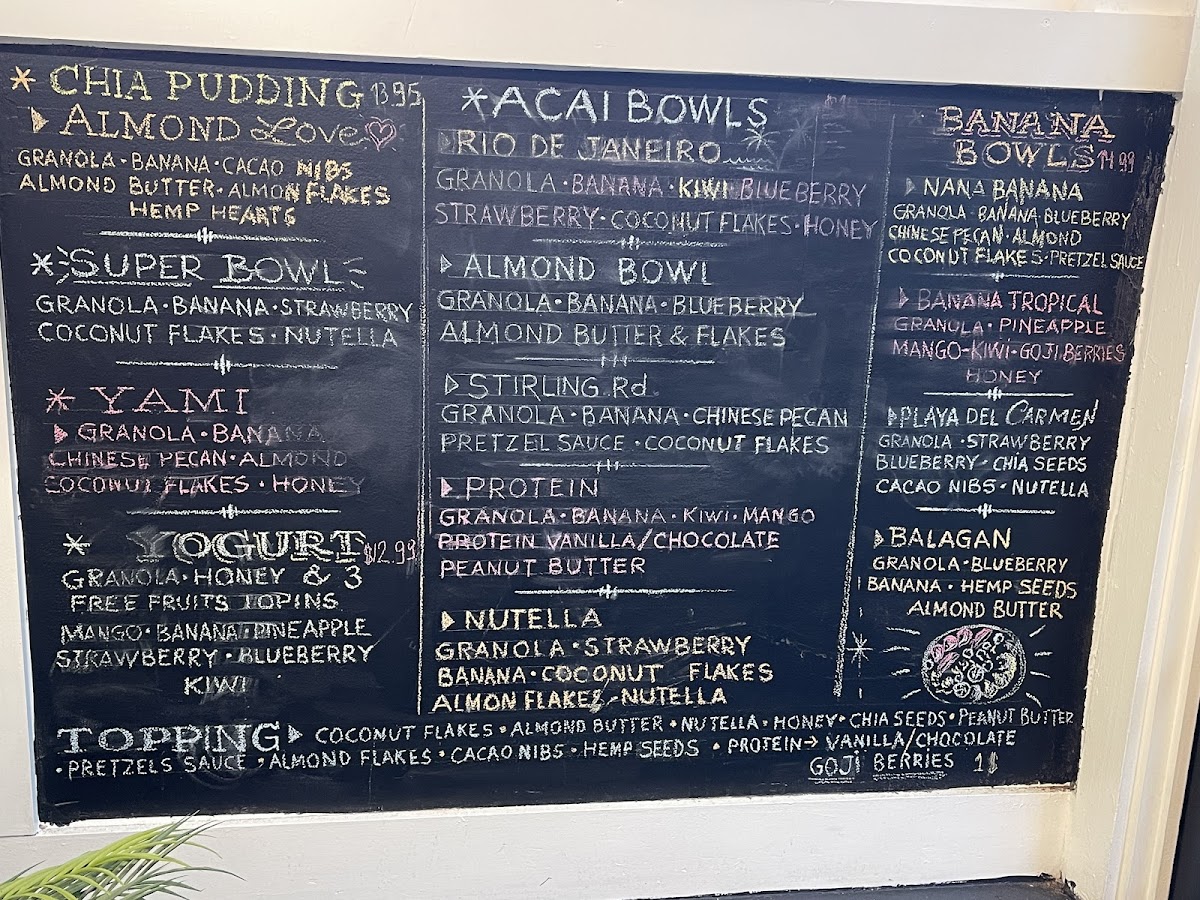 * CHIA PUDDING 13.95
ALMOND Love
GRANOLA · BANANA · CACAO NIBS
ALMOND BUTTER · ALMON FLAKES
HEMP HEARTS
* SUPER BOWL
GRANOLA · BANANA · STRAWBERRY
COCONUT FLAKES · NUTELLA
* YAMI
GRANOLA · BANANA
CHINESE PECAN · ALMOND
COCONUT FLAKES · HONEY
* YOGURT $12.99
GRANOLA · HONEY & 3
FREE FRUITS TOPINS
MANGO · BANANA · PINEAPPLE
STRAWBERRY · BLUEBERRY
KIWI
* ACAI BOWLS
RIO DE JANEIRO
GRANOLA · BANANA · KIWI · BLUEBERRY
STRAWBERRY · COCONUT FLAKES · HONEY
ALMOND BOWL
GRANOLA · BANANA · BLUEBERRY
ALMOND BUTTER & FLAKES
STIRLING Rd.
GRANOLA · BANANA · CHINESE PECAN
PRETZEL SAUCE · COCONUT FLAKES
PROTEIN
GRANOLA · BANANA · KIWI · MANGO
PROTEIN VANILLA/CHOCOLATE
PEANUT BUTTER
NUTELLA
GRANOLA · STRAWBERRY
BANANA · COCONUT FLAKES
ALMON FLAKES · NUTELLA
BANANA
BOWLS 14.99
NANA BANANA
GRANOLA · BANANA · BLUEBERRY
CHINESE PECAN · ALMOND
COCONUT FLAKES · PRETZEL SAUCE
BANANA TROPICAL
GRANOLA · PINEAPPLE
MANGO · KIWI · GOJI BERRIES
HONEY
PLAYA DEL CARMEN
GRANOLA · STRAWBERRY
BLUEBERRY · CHIA SEEDS
CACAO NIBS · NUTELLA
BALAGAN
GRANOLA · BLUEBERRY
BANANA · HEMP SEEDS
ALMOND BUTTER
TOPPING COCONUT FLAKES · ALMOND BUTTER · NUTELLA · HONEY · CHIA SEEDS · PEANUT BUTTER
· PRETZELS SAUCE · ALMOND FLAKES · CACAO NIBS · HEMP SEEDS · PROTEIN → VANILLA/CHOCOLATE
GOJI BERRIES 1$